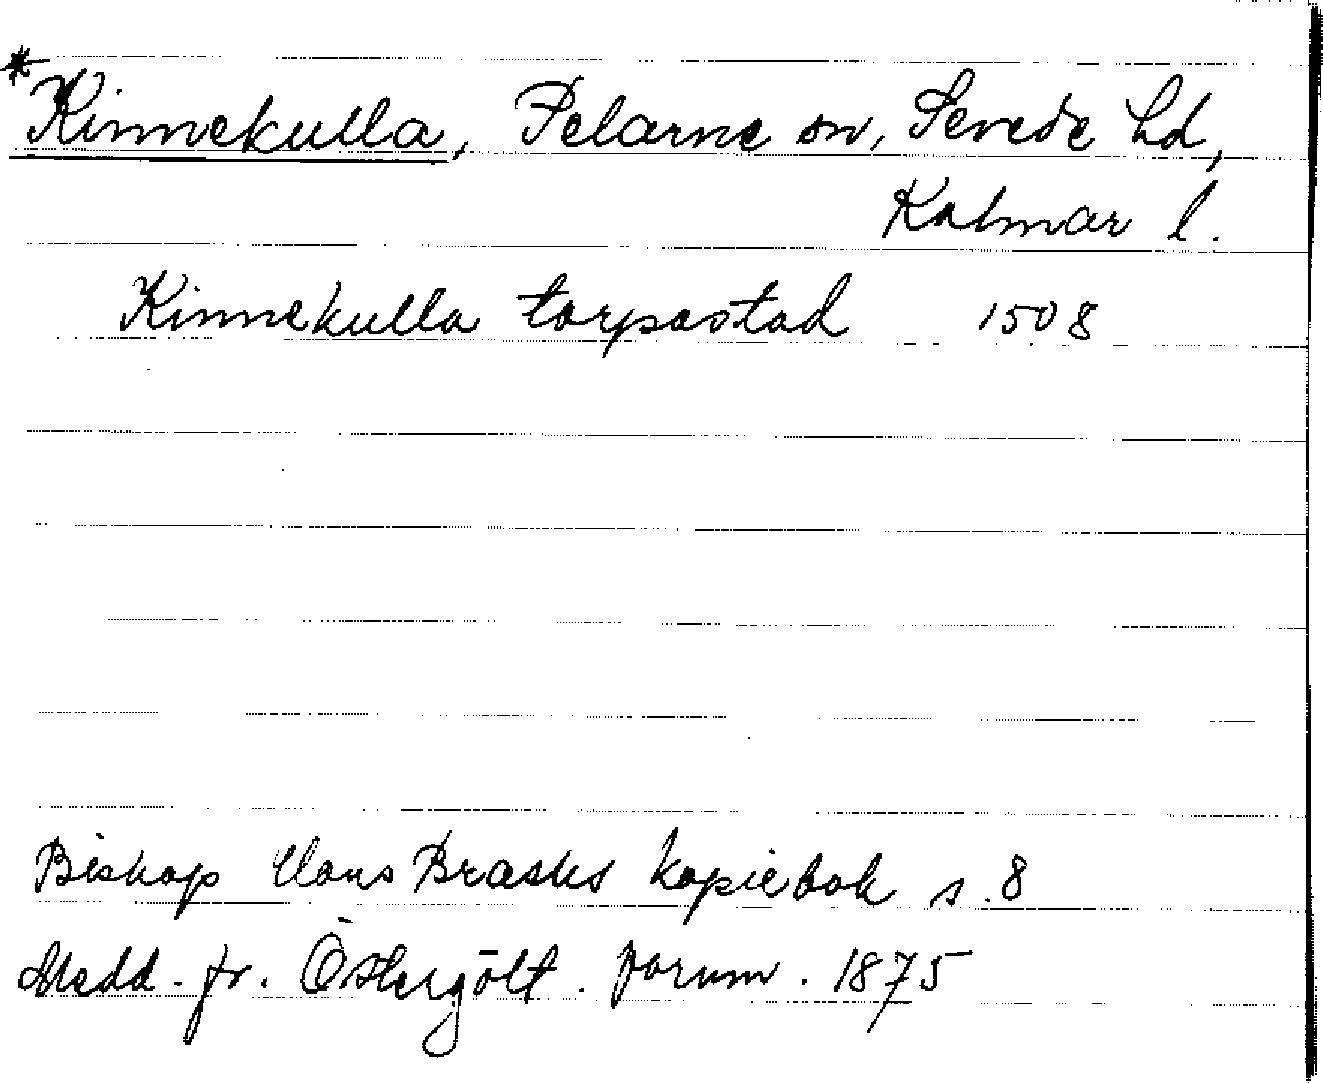 *Kinnekulla, Pelarne sn, Sevede hd,
Kalmar l.
Kinnekulla torpastad 1508
Biskop Hans Brasks kopiebok s. 8
Medd. fr. Östergötl. fornm. 1875